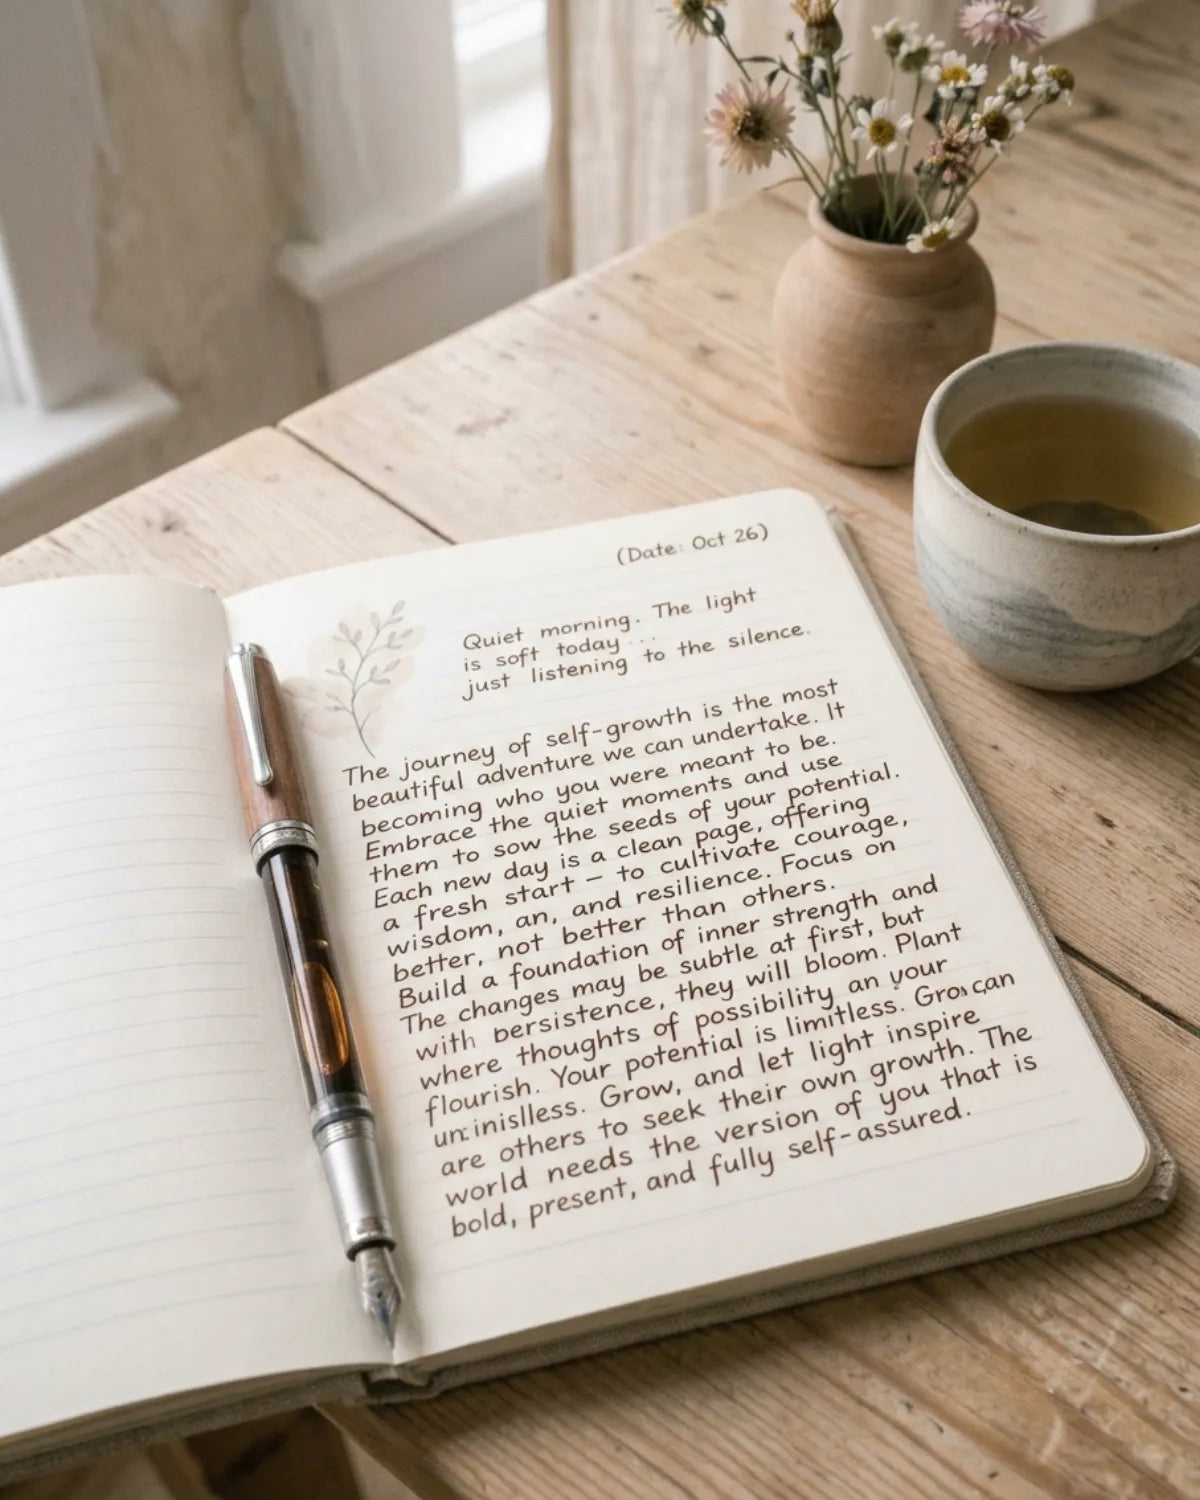 (Date: Oct 26)
Quiet morning. The light
is soft today ...
just listening to the silence.
The journey of self-growth is the most
beautiful adventure we can undertake. It
becoming who you were meant to be.
Embrace the quiet moments and use
them to sow the seeds of your potential.
Each new day is a clean page, offering
a fresh start – to cultivate courage,
wisdom, an, and resilience. Focus on
better, not better than others.
Build a foundation of inner strength and
The changes may be subtle at first, but
with bersistence, they will bloom. Plant
where thoughts of possibility an your
flourish. Your potential is limitless. can
Grow, and let light inspire
are others to seek their own growth. The
world needs the version of you that is
bold, present, and fully self-assured.